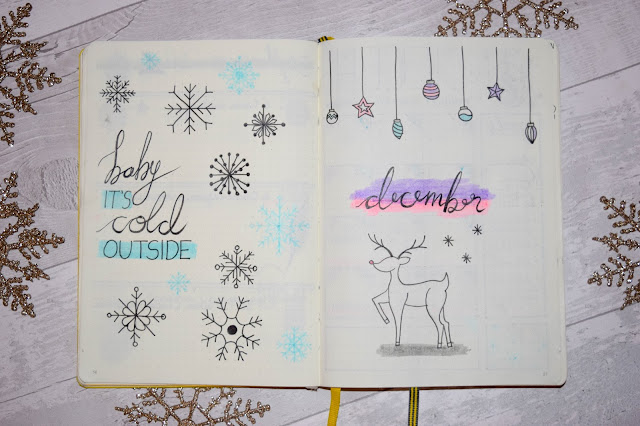 baby
IT'S
cold
OUTSIDE
december